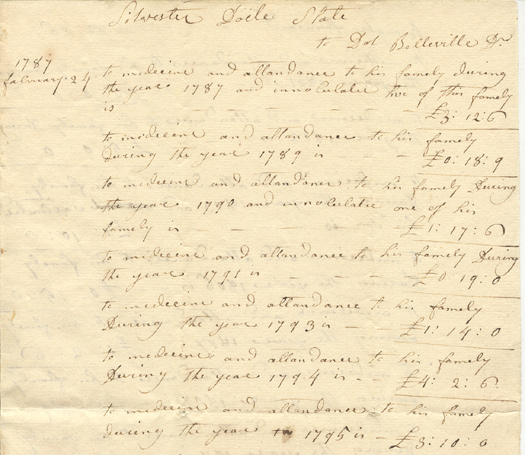 Silvester Doële State
to Dot Belleville Dr
1787
february 24 to medecine and attandance to his famely during
the year 1787 and innoculatie two of this famely
is — — — £3: 12: 6
to medecine and attandance to his famely
During the year 1789 is — £0: 18: 9
to medecine and attandance to his famely During
the year 1790 and innoculatie one of his
famely is — — — £1: 17: 6
to medecine and attandance to his famely During
the year 1791 is — — — £0 19: 0
to medecine and attandance to his famely
During the year 1793 is — £1: 14: 0
to medecine and attandance to his famely
During the year 1794 is - - £4: 2: 6
to medecine and attandance to his famely
during the year 1795 is — £3: 10: 0